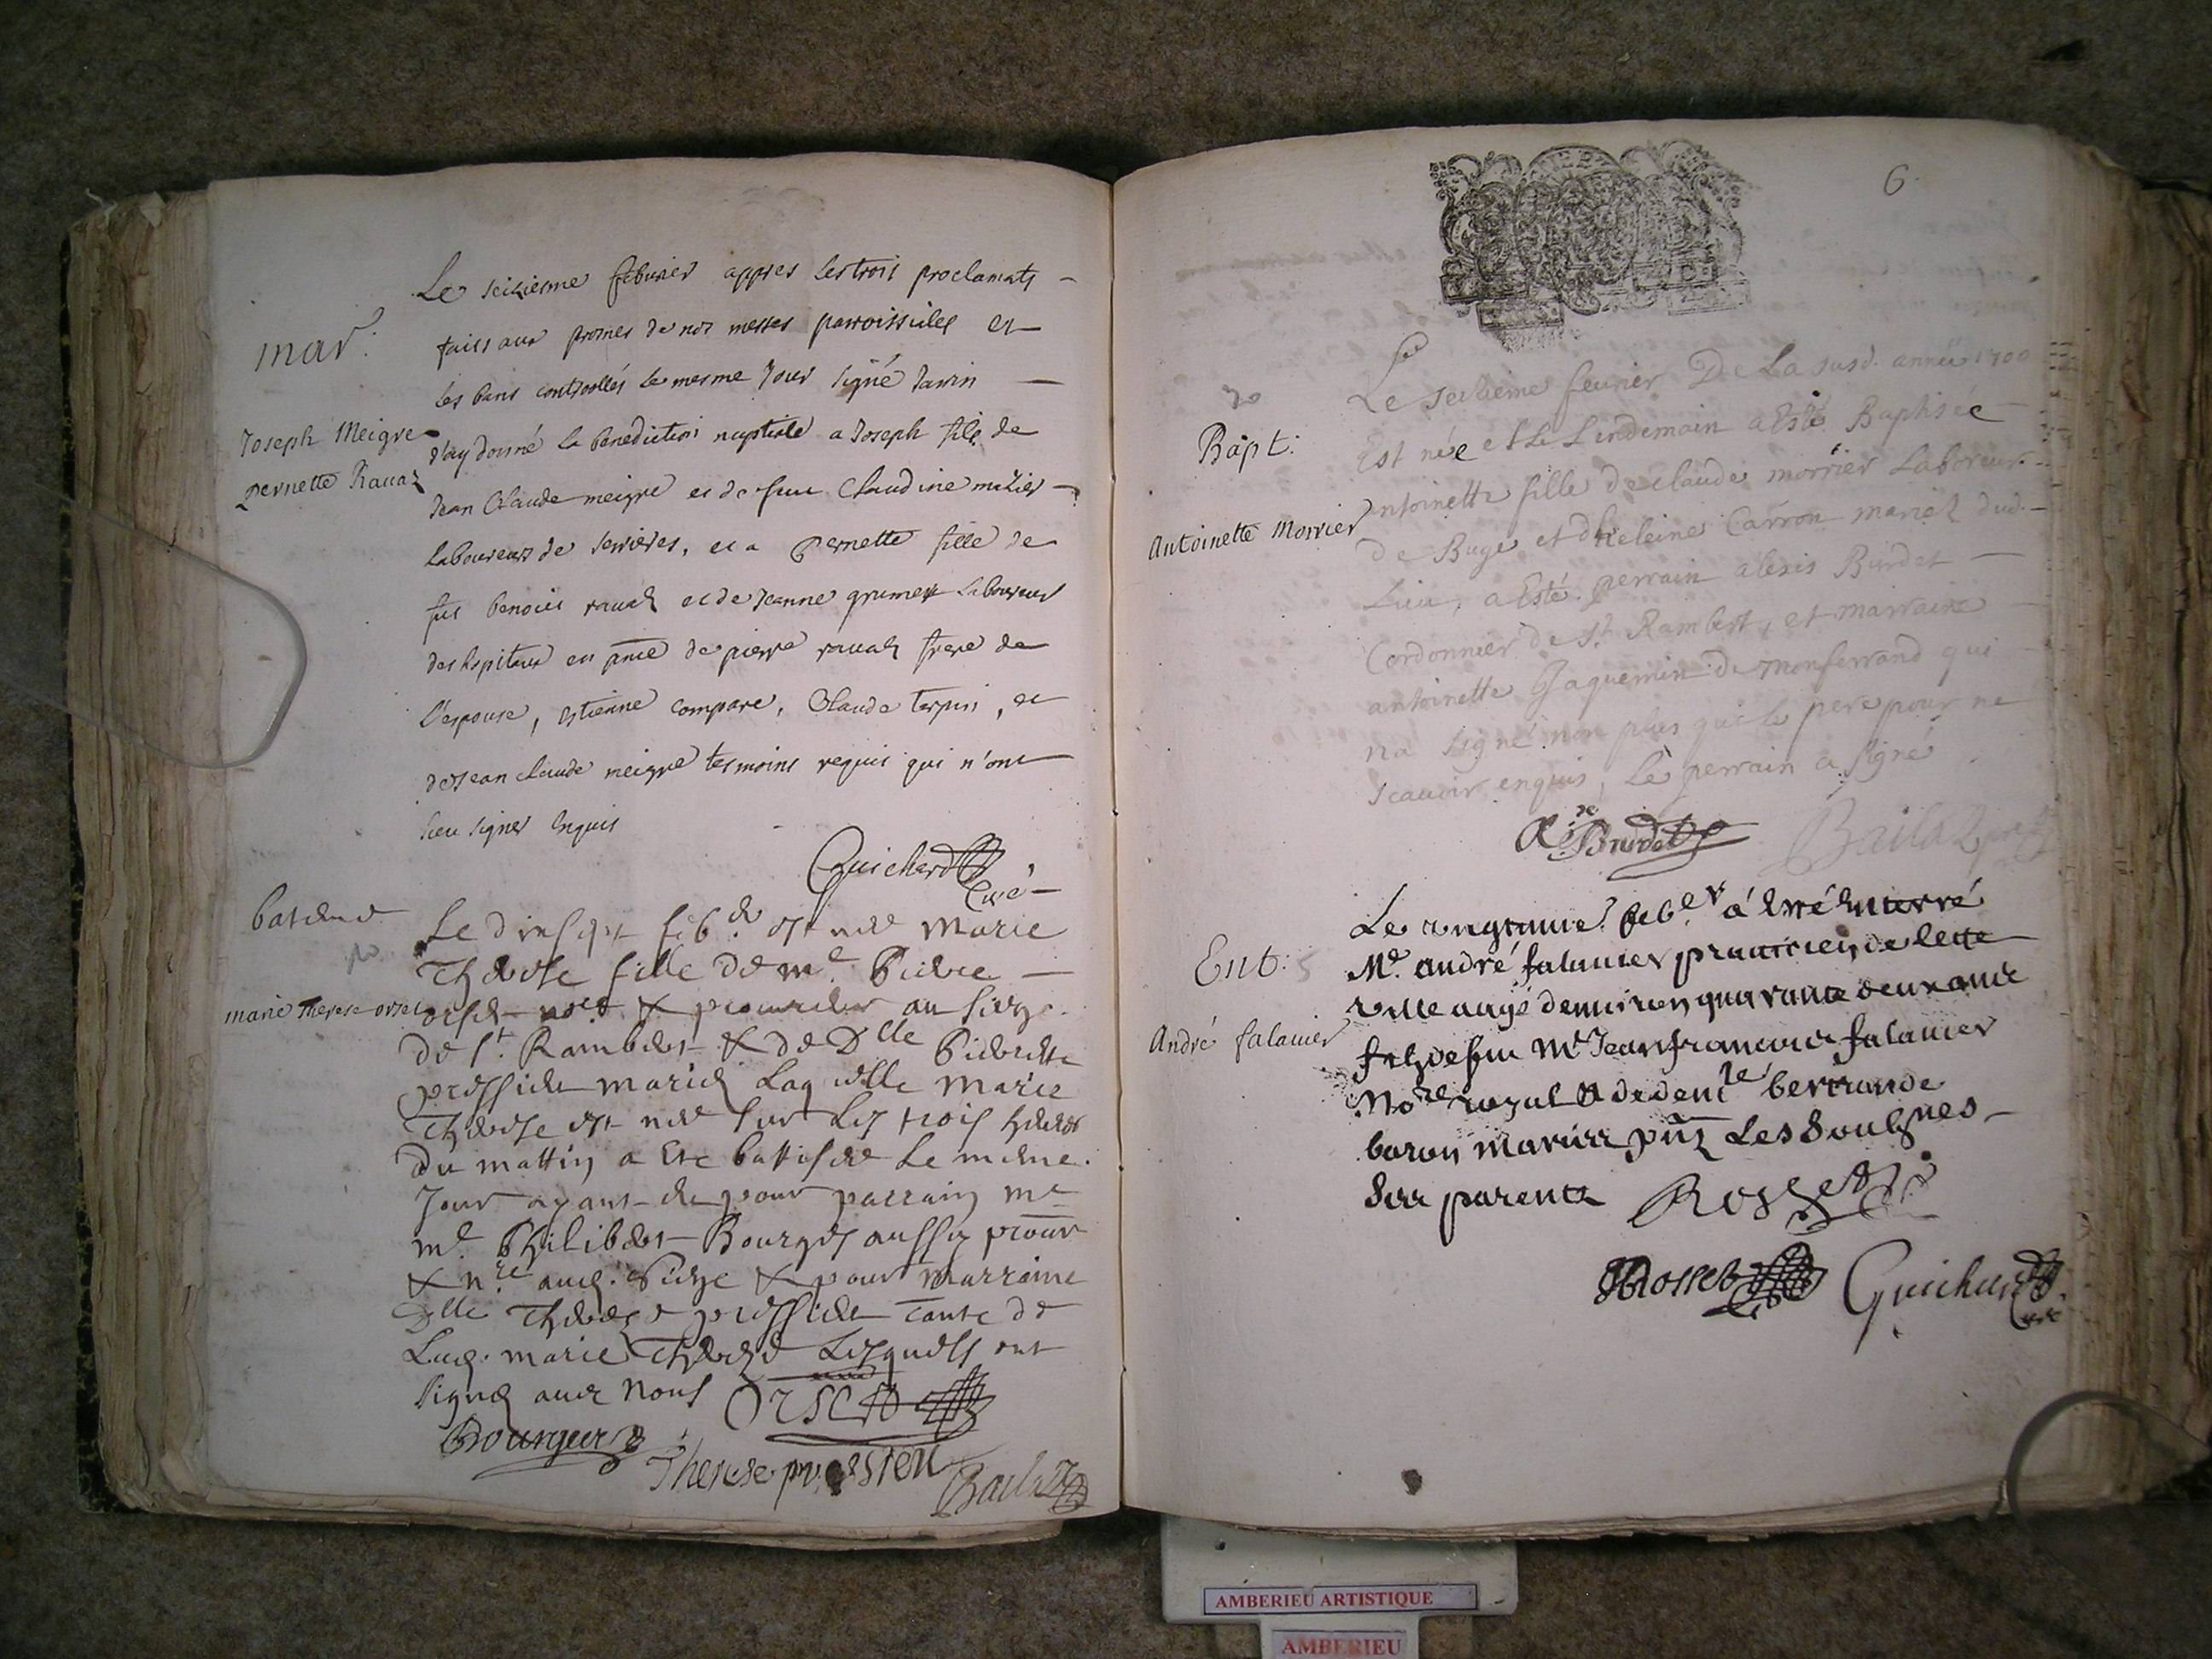 mar.
Joseph Meigre
pernette Ravaz
Le seiziesme febvrier appres les trois proclamats
faits aux prosnes de nos messes parroissiales et
les bans controollés le mesme Jour signé Janin
J'ay donné la benediction nuptiale a Joseph fils de
Jean Claude meigre et de feue Claudine mazier
laboureurs de serrieres, et a Pernette fille de
feu benoict ravaz et de Jeanne grumet laboureurs
des hospitaux en pnce de pierre ravaz frere de
l'espouse, estienne compare, Claude terpin, et
de Jean claude meigre tesmoins requis qui n'ont
sceu signer enquis
Guichard
Curé
batême
marie Therese orset
Le dixsept feb.er est née Marie
Therese fille de me. Pierre
orset no.re & procureur au siege
de St. Rambert & de Dlle Pierrette
pressieu mariez Laquelle Marie
Therese est née sur Les trois heures
du mattin a Ete battisée Le meme
Jour ayant eu pour parrain me
me. Philibert Bourges aussy procur
& n.re aud. Siege & pour marraine
Dlle Therese pressieu tante de
Lad. marie Therese Lesquels ont
signé avec nous Orset
Bourges
Therese pressieu
Bailaz
6
Bapt:
Antoinette Morrier
Le seizieme fevrier De La susd. année 1700
Est née et Le Lendemain a Esté Baptisée
antoinette fille de claude morrier Laboreur
de Bugé et d'heleine Carron mariez dud.
Lieu, a Esté perrain alexis Burdet
Cordonnier de St. Rambert, et marraine
antoinette Jaquemin de Monferrand qui
na signé non plus que le pere pour ne
scavoir enquis, Le perrain a signé
A Burdet
Bailaz
Ent:
André falavier
Le vingtunie. feb.er á esté enterré
Me. andré falavier praticien de cette
ville aagé denviron quarante deux ans
fils de feu Me Jean francois falavier
No.re royal & de dem.le bertrande
baron mariez pnt Les soubsnes
Ses parents Rosset
Rosset
Guichard
Curé
AMBERIEU ARTISTIQUE
AMBERIEU